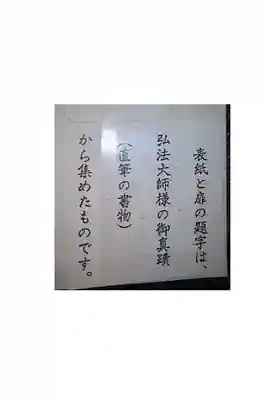 表紙と扉の題字は、
弘法大師様の御真蹟
(直筆の書物)
から集めたものです。